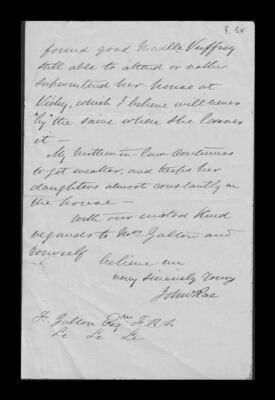 f. 3v
found good Madlle
still able to attend or rather
superintend her house at
Vichy, which I believe will never
"by" the same when she leaves
it —
My Mother in law continues
to get weaker, and keeps her
daughters almost constantly in
the house —
With our united kind
regards to Mrs Galton and
yourself believe me
very sincerely yours
John Rae
F. Galton Esqre F.R.S.
&c &c &c